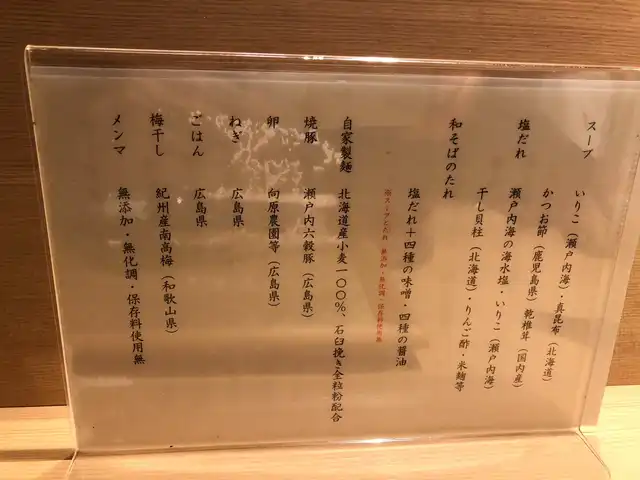 スープ
いりこ（瀬戸内海）・真昆布（北海道）
かつお節（鹿児島県）乾椎茸（国内産）
塩だれ
瀬戸内海の海水塩・いりこ（瀬戸内海）
干し貝柱（北海道）・りんご酢・米麹等
和そばのたれ
塩だれ＋四種の味噌・四種の醤油
※スープとたれ 無添加・無化調・保存料使用無
自家製麺 北海道産小麦一〇〇％、石臼挽き全粒粉配合
焼豚 瀬戸内六穀豚（広島県）
卵 向原農園等（広島県）
ねぎ 広島県
ごはん 広島県
梅干し 紀州産南高梅（和歌山県）
メンマ 無添加・無化調・保存料使用無